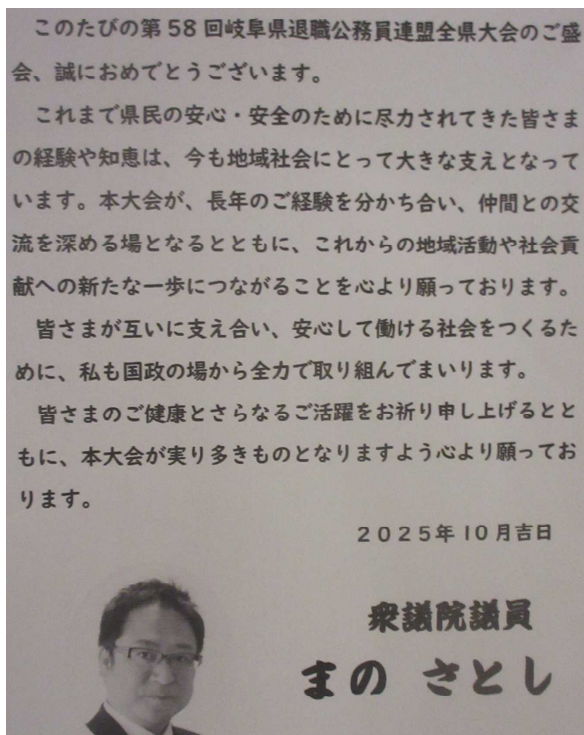 このたびの第58回岐阜県退職公務員連盟全県大会のご盛
会、誠におめでとうございます。
これまで県民の安心・安全のために尽力されてきた皆さま
の経験や知恵は、今も地域社会にとって大きな支えとなって
います。本大会が、長年のご経験を分かち合い、仲間との交
流を深める場となるとともに、これからの地域活動や社会貢
献への新たな一歩につながることを心より願っております。
皆さまが互いに支え合い、安心して働ける社会をつくるた
めに、私も国政の場から全力で取り組んでまいります。
皆さまのご健康とさらなるご活躍をお祈り申し上げるとと
もに、本大会が実り多きものとなりますよう心より願ってお
ります。
2025年10月吉日
衆議院議員
まの さとし